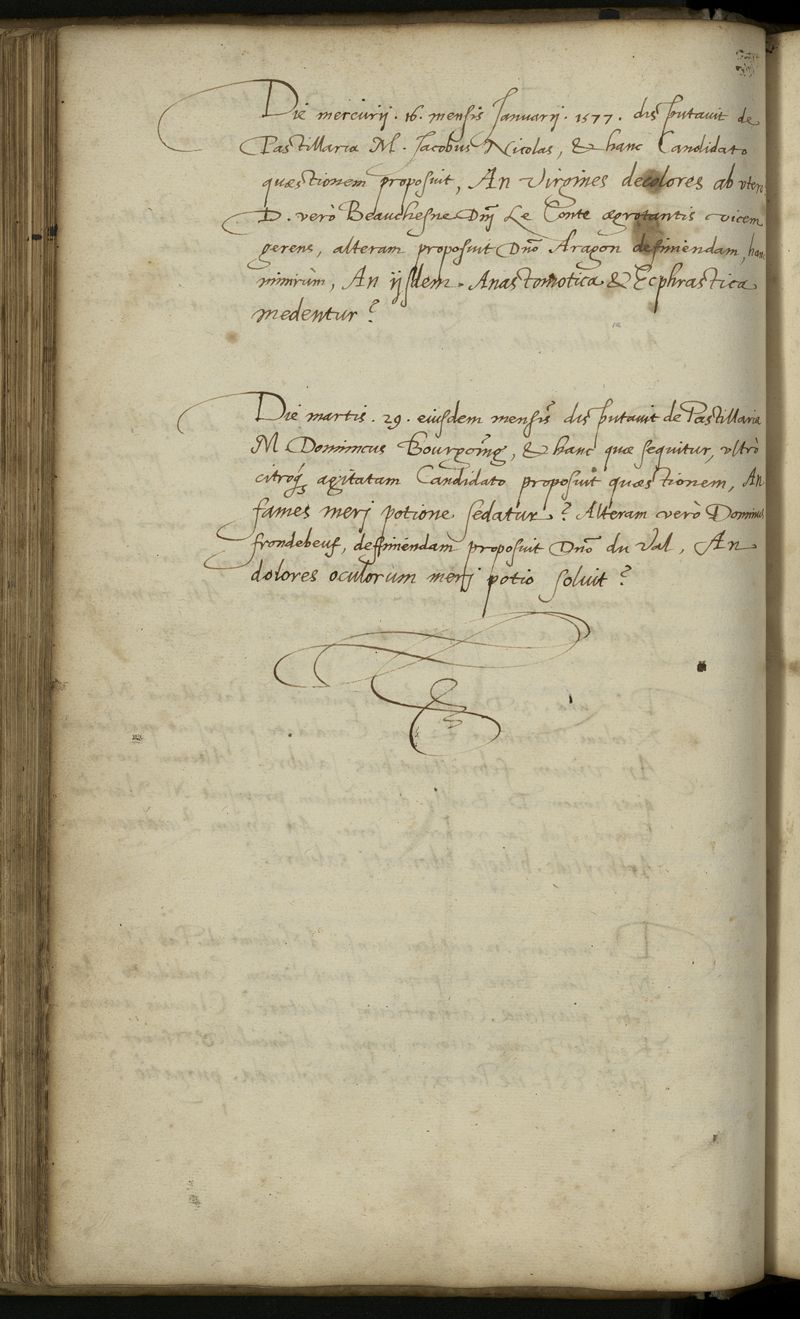 Die mercurij . 16 . mensis Januarij . 1577 . disputauit de
Pastillaria M . Jacobus Nicolas, & hanc Candidato
quæstionem proposuit, An Virgines decolores ab vtero
D . verò Beauchesne Dnj Le Conte ægrotantis vicem
gerens, alteram proposuit Dno Aragon definiendam, hanc
nimirùm, An ijsdem . Anastomotica & Ecphrastica
medentur ?
Die martis . 29 . eiusdem mensis disputauit de Pastillaria
M Dominicus & hanc quæ sequitur, vltrò
citroq; agitatam Candidato proposuit quæstionem, An
fames merj potione sedatur ? Alteram verò Dominus
frondebeuf, deffiniendam proposuit Dno du Val, An
dolores oculorum merj potio soluit ?